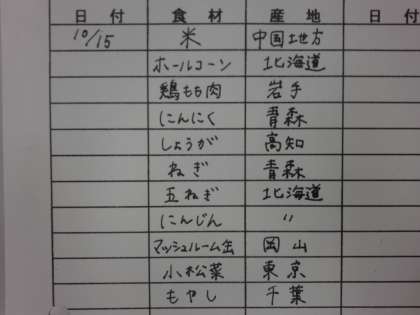 日付 食材 産地 日付
10/15 米 中国地方
ホールコーン 北海道
鶏もも肉 岩手
にんにく 青森
しょうが 高知
ねぎ 青森
玉ねぎ 北海道
にんじん 〃
マッシュルーム缶 岡山
小松菜 東京
もやし 千葉